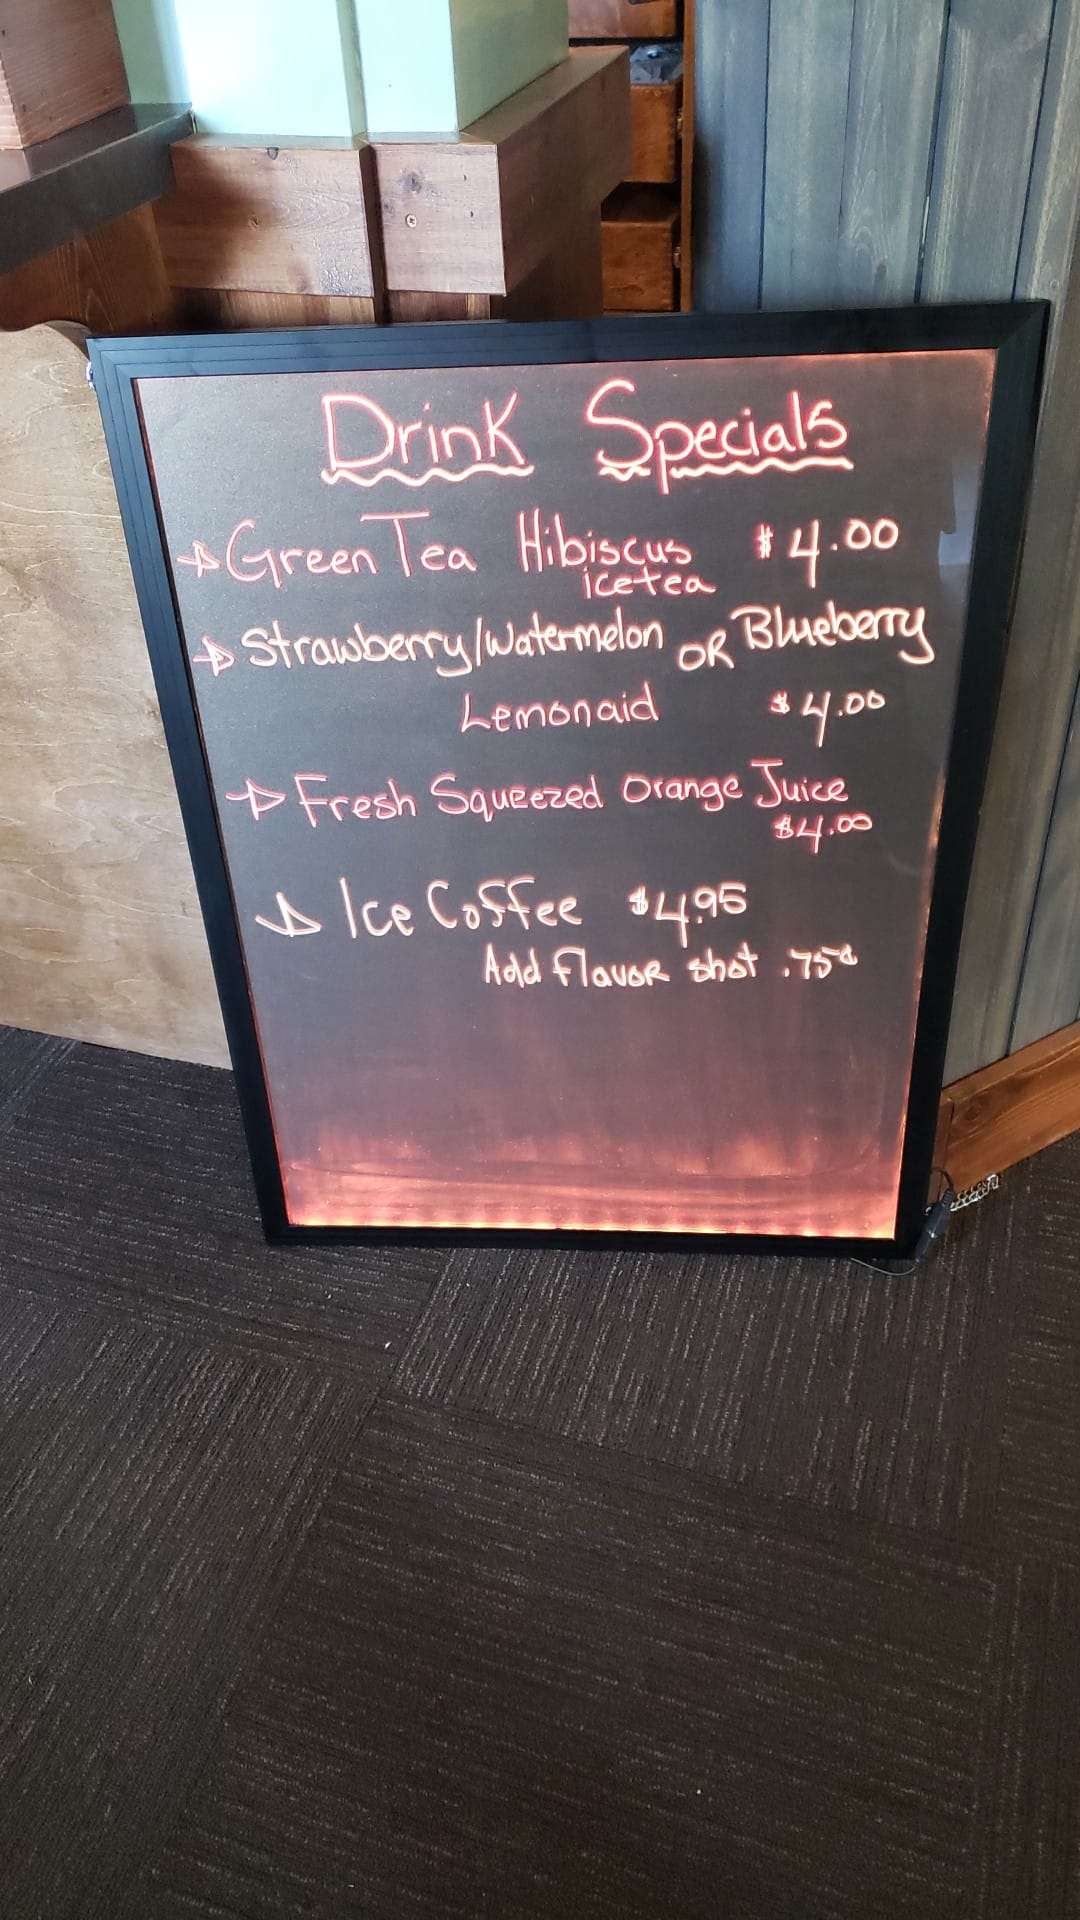 Drink Specials
Green Tea Hibiscus $4.00
icetea
Strawberry/Watermelon OR Blueberry
Lemonaid $4.00
Fresh Squeezed Orange Juice
$4.00
Ice Coffee $4.95
Add Flavor shot .75¢